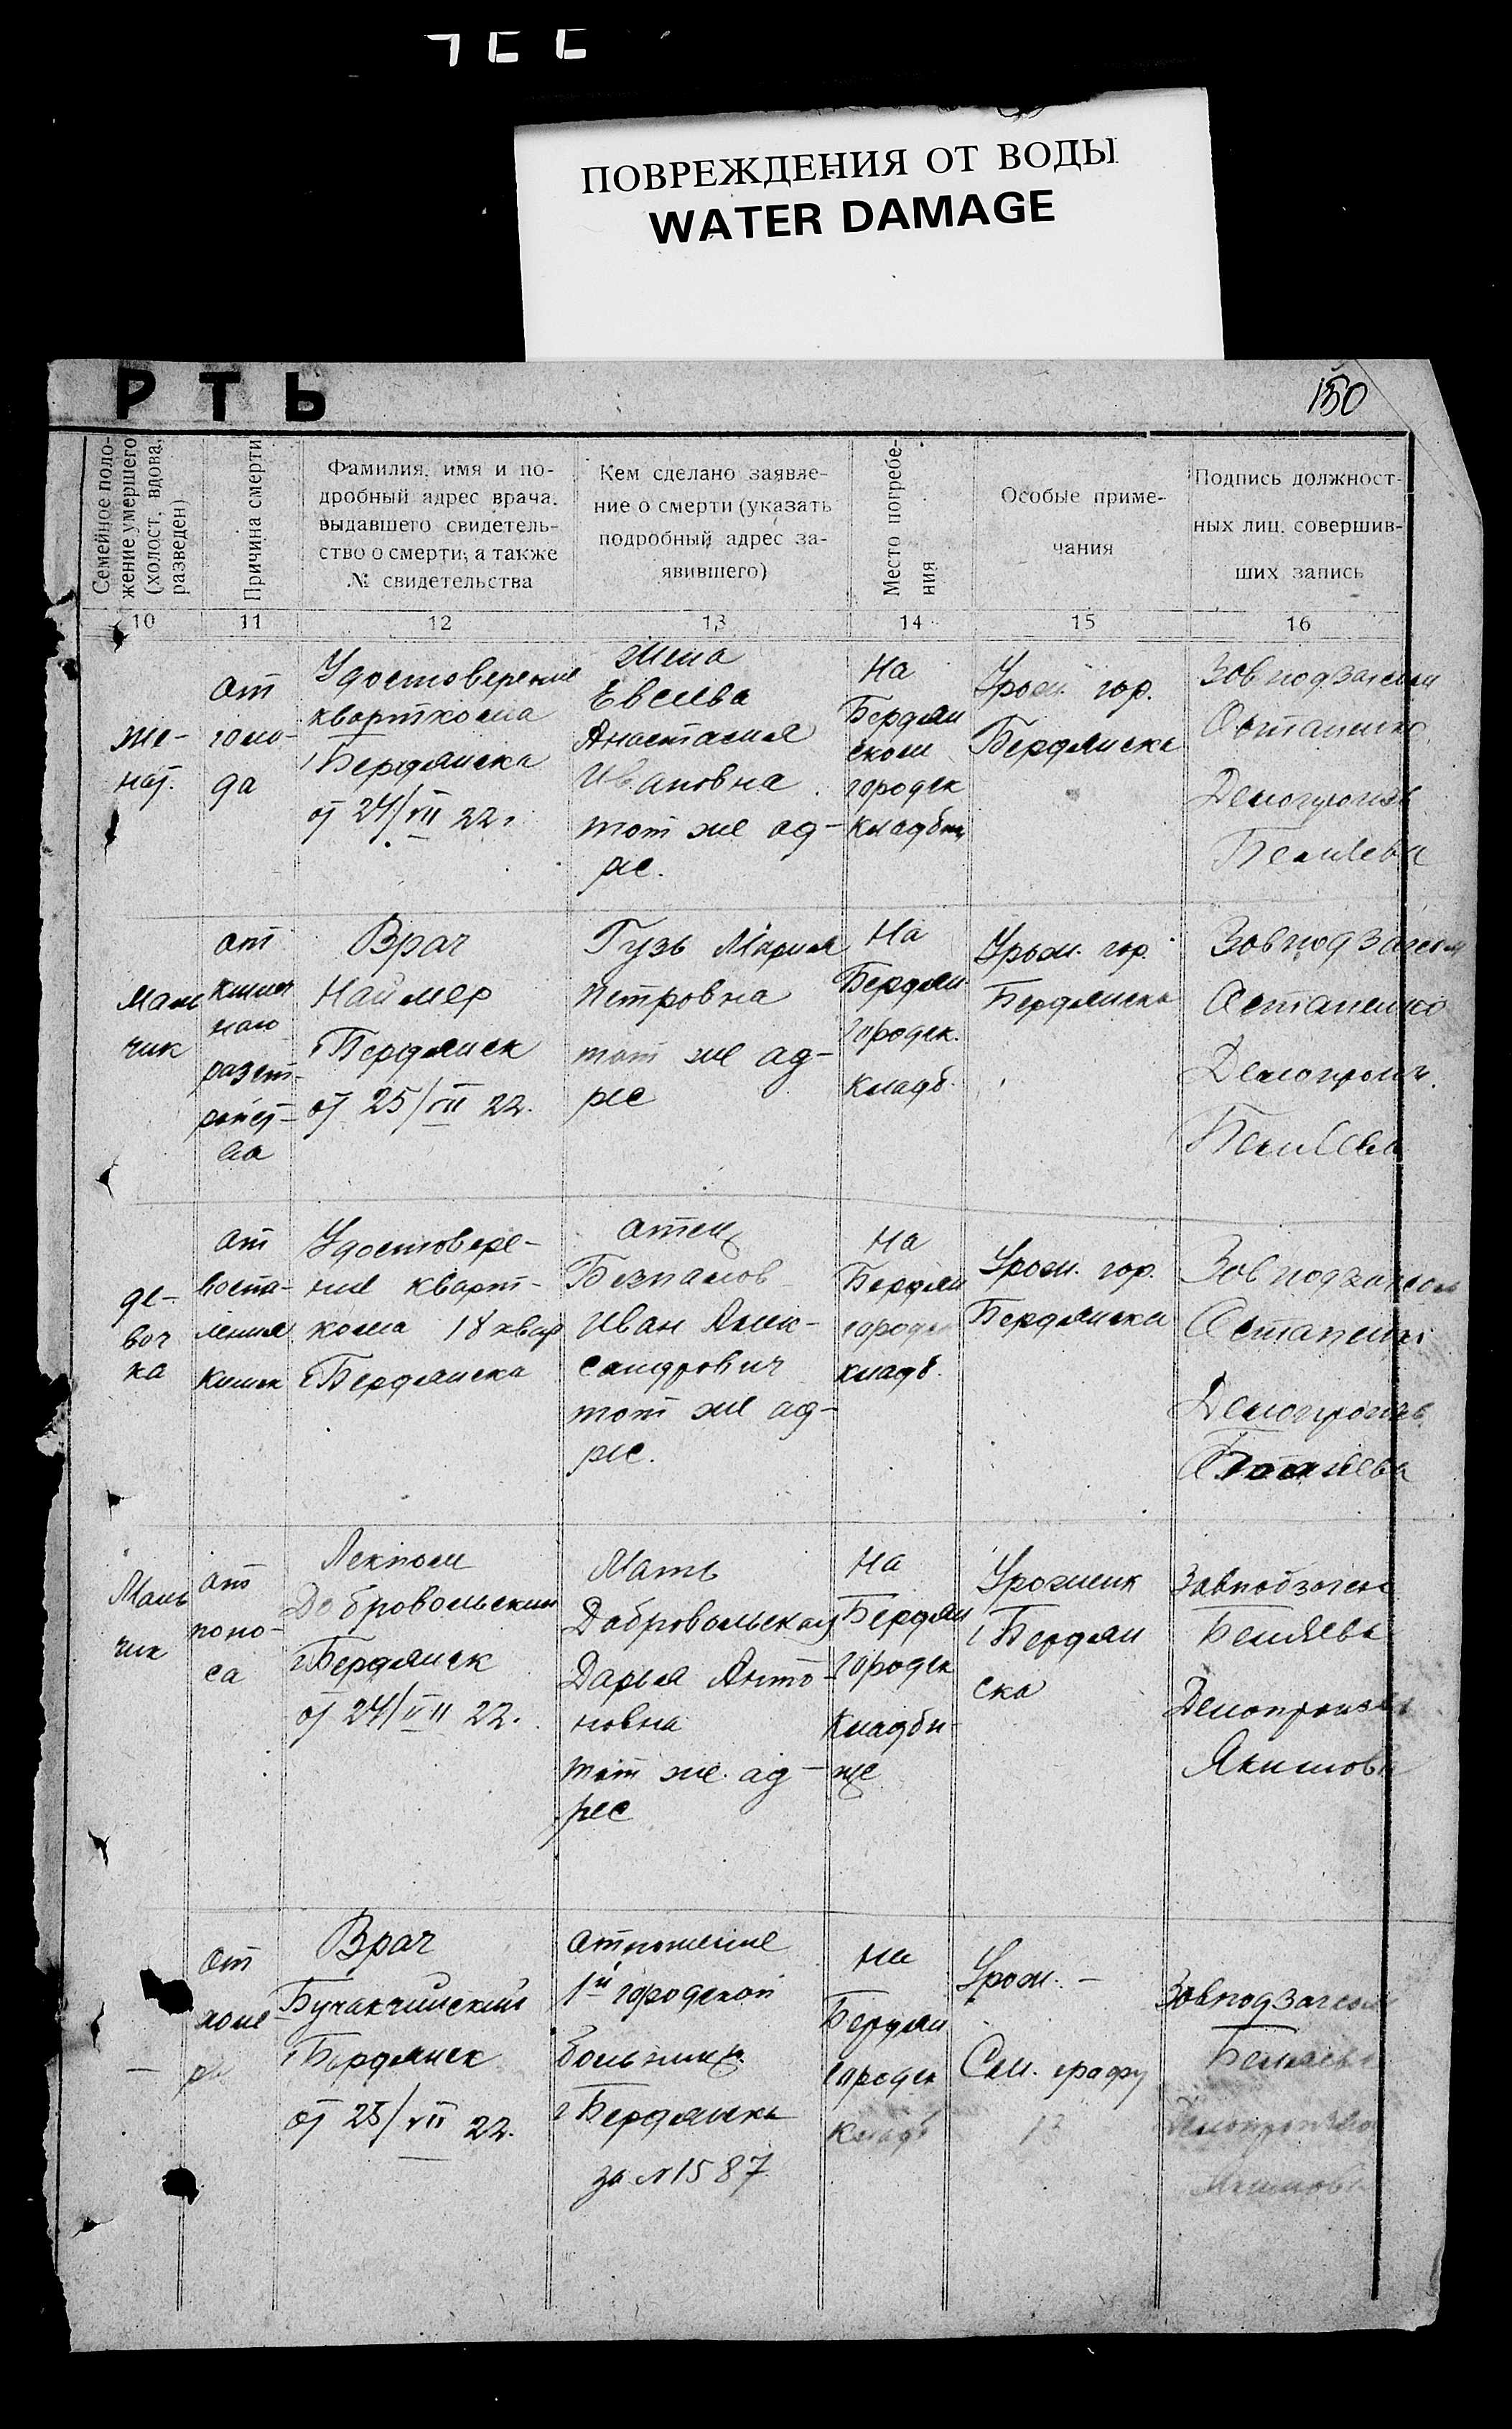 ПОВРЕЖДЕНИЯ ОТ ВОДЫ
WATER DAMAGE
РТЬ
150
Семейное поло-
жение умершего
(холост, вдова,
разведен)
Причина смерти
Фамилия, имя и по-
дробный адрес врача,
выдавшего свидетель-
ство о смерти, а также
№ свидетельства
Кем сделано заявле-
ние о смерти (указать
подробный адрес за-
явившего)
Место погребе-
ния
Особые приме-
чания
Подпись должност-
ных лиц, совершив-
ших запись
10
11
12
13
14
15
16
же-
нат.
от
голо-
да
Удостоверение
кварткома
г Бердянска
от 24/VII 22 г
жена
Евсеева
Анастасия
Ивановна
тот же ад-
рес.
На
Бердян
ском
городск
кладбищ
Урож. гор.
Бердянска
Завподзагсом
Остапенко
Делопроизв
Беляева
Маль
чик
от
кишеч
ного
расст-
ройст-
ва
Врач
Наймер
г Бердянск
от 25/VII 22.
Гузь Мария
Петровна
тот же ад-
рес
На
Бердян
городск.
кладб.
Урож. гор.
Бердянска
Завподзагсом
Остапенко
Делопроизв.
Беляева
де-
воч
ка
от
воспа-
ления
кишек
Удостовере-
ние кварт-
кома 18 квар
г Бердянска
отец
Безпалов
Иван Алек-
сандрович
тот же ад-
рес.
На
Бердян
городск
кладб.
Урож. гор.
Бердянска
Завподзагсом
Остапенко
Делопроизв
Маль
чик
от
поно-
са
Лекпом
Добровольский
г Бердянск
от 24/VII 22.
Мать
Добровольская
Дарья Анто-
новна
тот же ад-
рес
На
Бердян
городск
кладби-
ще
Уроженк
г Бердян
ска
Завподзагсом
Беляева
Делопроизв
Якимова
—
от
холе
ры
Врач
Бучакчийский
г Бердянск
от 25/VII 22.
отношение
1й городской
больниц.
г Бердянска
за №1587.
На
Бердян
городск
кладб
Урож. —
См. графу
13
Завподзагсом
Беляева
Делопроизво
Якимова